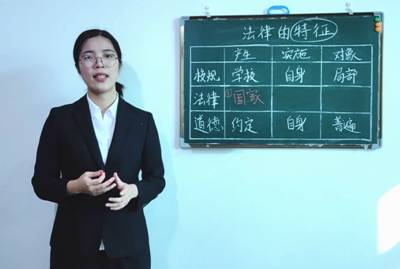 法律的特征
产生 实施 对象
校规 学校 自身 局部
法律 ①国家
道德 约定 自身 普遍